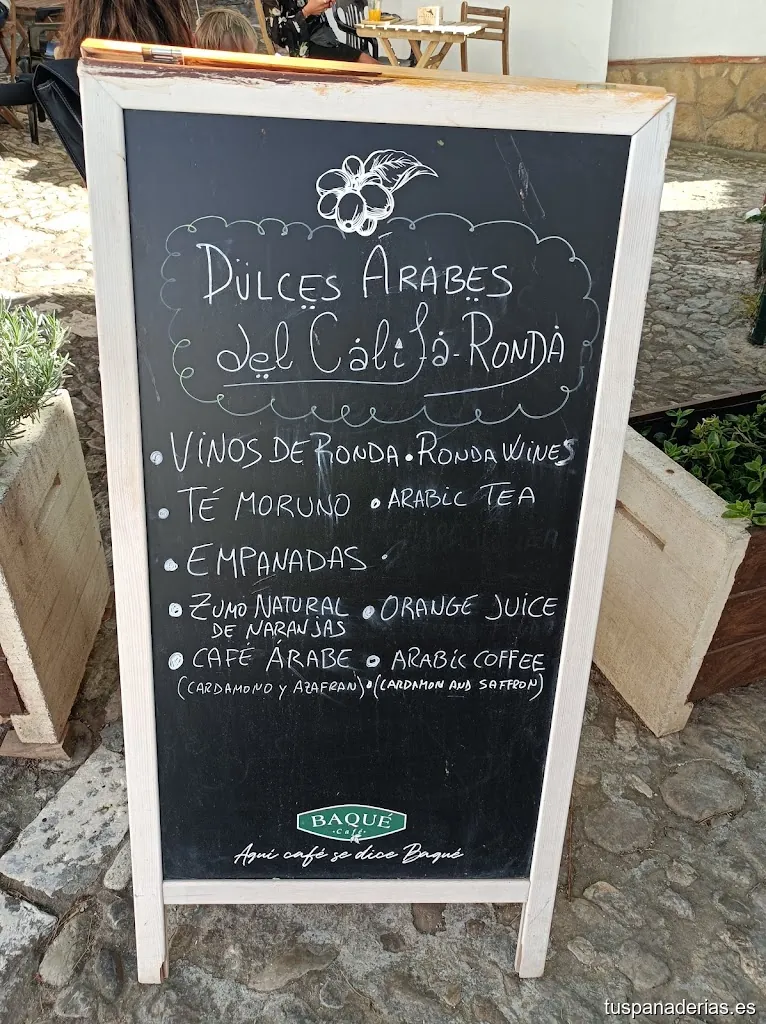 DULCES ÁRABES
del Califa-RONDA
• VINOS DE RONDA • RONDA WINES
• TÉ MORUNO • ARABIC TEA
• EMPANADAS •
• ZUMO NATURAL DE NARANJAS • ORANGE JUICE
• CAFÉ ÁRABE • ARABIC COFFEE
(CARDAMONO Y AZAFRAN) • (CARDAMON AND SAFFRON)
BAQUÉ
• Café •
Aquí café se dice Baqué
tuspanaderias.es